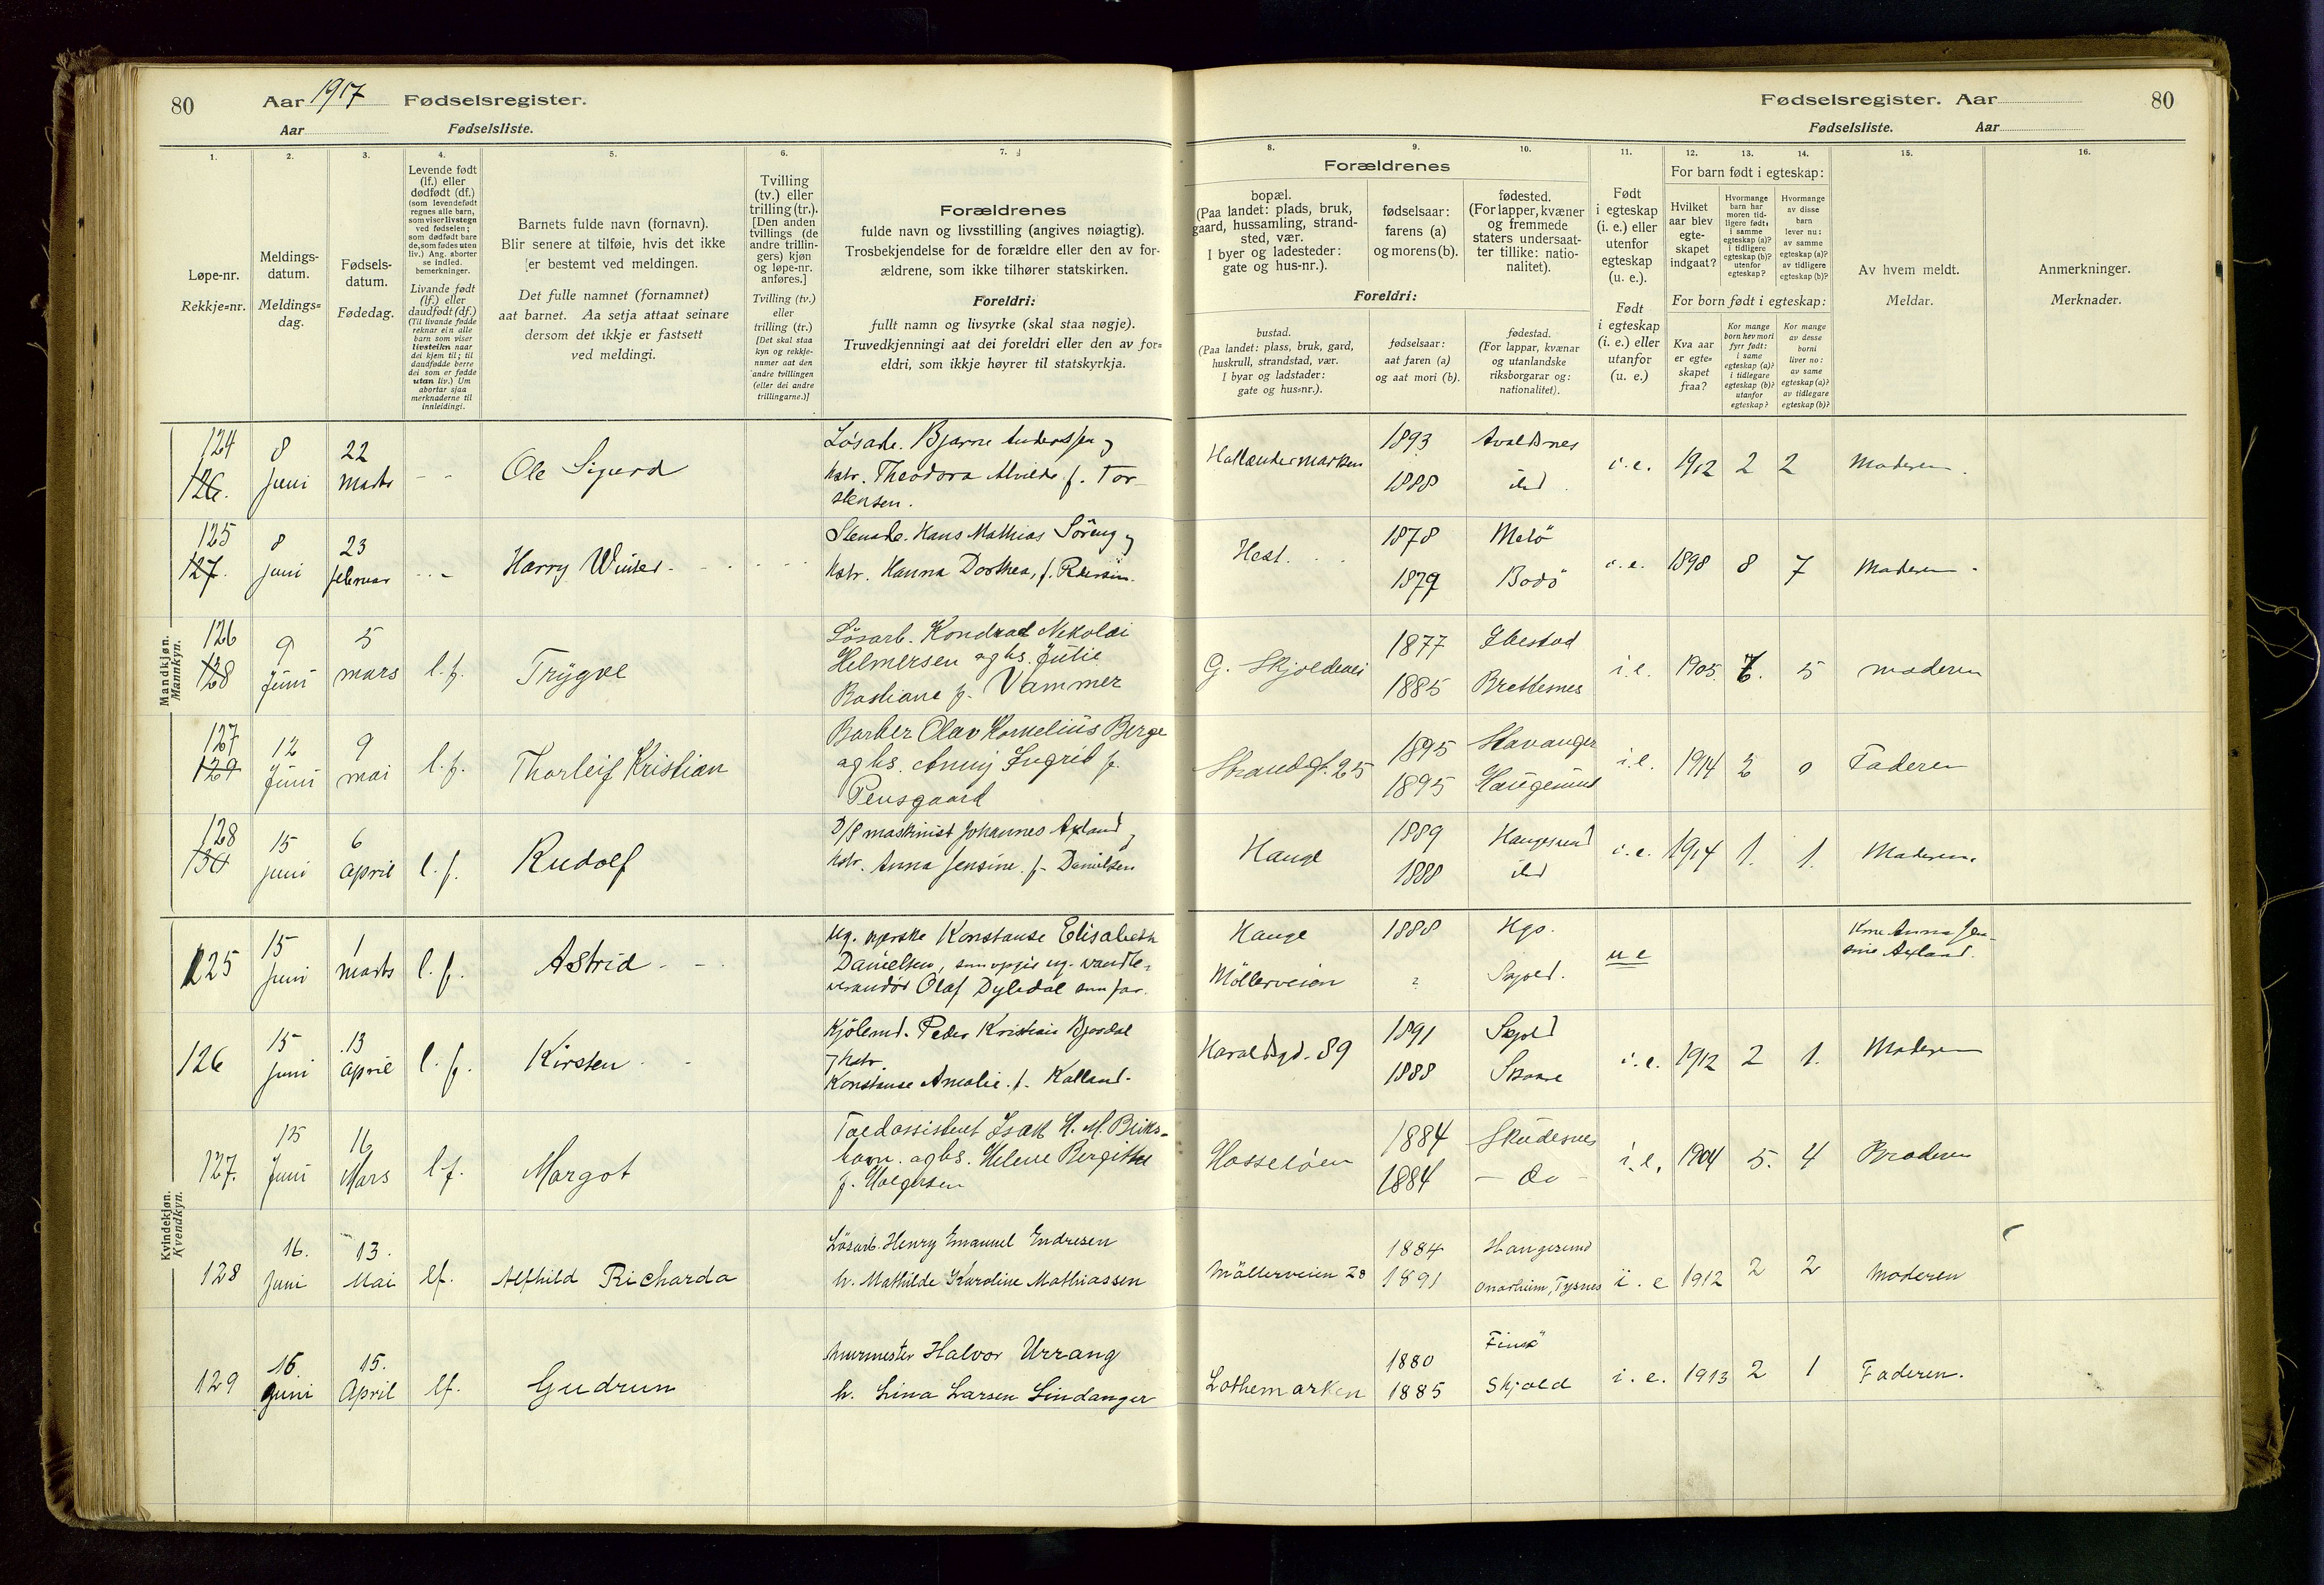 80
Aar 1917 Fødselsregister.
Aar Fødselsliste.
Fødselsregister. Aar
80
Fødselsliste. Aar
1.
2.
3.
4.
5.
6.
7.
8.
9.
10.
11.
12.
13.
14.
15.
16.
Løpe-nr.
Rekkje=nr.
Meldings-
datum.
Meldings=
dag.
Fødsels-
datum.
Fødedag.
Levende født
(lf.) eller
dødfødt (df.)
(som levendefødt
regnes alle barn,
som viser livstegn
ved fødselen;
som dødfødt bare
de, som fødes uten
liv.) Ang. aborter
se indled.
bemerkninger.
Livande født
(lf.) eller
daudfødt (df.)
(Til livande fødde
reknar ein alle
barn som viser
livsteikn naar
dei kjem til; til
daudfødde berre
dei som er fødde
utan liv.) Um
abortar sjaa
merknaderne til
innleidingi.
Barnets fulde navn (fornavn).
Blir senere at tilføie, hvis det ikke
er bestemt ved meldingen.
Det fulle namnet (fornamnet)
aat barnet. Aa setja attaat seinare
dersom det ikkje er fastsett
ved meldingi.
Tvilling
(tv.) eller
trilling (tr.).
[Den anden
tvillings (de
andre trillin-
gers) kjøn
og løpe-nr.
anføres.]
Tvilling (tv.)
eller
trilling (tr.)
[Det skal staa
kyn og rekkje-
nummer aat den
andre tvillingen
(eller dei andre
trillingarne.)]
Forældrenes
fulde navn og livsstilling (angives nøiagtig).
Trosbekjendelse for de forældre eller den av for-
ældrene, som ikke tilhører statskirken.
Foreldri:
fullt namn og livsyrke (skal staa nøgje).
Truvedkjenningi aat dei foreldri eller den av for=
eldri, som ikkje høyrer til statskyrkja.
Forældrenes
bopæl.
(Paa landet: plads, bruk,
gaard, hussamling, strand-
sted, vær.
I byer og ladesteder:
gate og hus-nr.).
fødselsaar:
farens (a)
og morens (b).
fødested.
(For lapper, kvæner
og fremmede
staters undersaat-
ter tillike: natio-
nalitet).
Foreldri:
bustad.
(Paa landet: plass, bruk, gard,
huskrull, strandstad, vær.
I byar og ladstader:
gate og hus=nr.).
fødselsaar:
aat faren (a)
og aat mori (b).
fødestad.
(For lappar, kvænar
og utanlandske
riksborgarar og:
nationalitet).
Født
i egteskap
(i. e.) eller
utenfor
egteskap
(u. e.).
Født
i egteskap
(i. e.) eller
utanfor
(u. e.)
For barn født i egteskap:
Hvilket
aar blev
egte-
skapet
indgaat?
Hvormange
barn har
moren tid-
ligere født:
i samme
egteskap (a)?
i tidligere
egteskap (b)?
utenfor
egteskap?
Hvormange
av disse
barn
lever nu:
av samme
egteskap (a)?
av tidligere
egteskap (b)?
For born født i egteskap:
Kva aar
er egte=
skapet
fraa?
Kor mange
born hev mori
fyrr født:
i same
egteskap (a)?
i tidlegare
egteskap (b)?
utanfor
egteskap?
Kor mange
av desse
borni
liver no:
av same
egteskap (a)?
av tidlegare
egteskap (b)?
Av hvem meldt.
Meldar.
Anmerkninger.
Merknader.
Mandkjøn.
Mannkyn.
124
126.
8
juni
22
marts
Ole Sigurd
Løsarb. Bjarne Anderssen og
hstr. Theodora Alvilde f. Tor-
stensen.
Hollendermarken
1893
1888
Avaldsnes
ibd
i.e. 1912 2 2 Moderen.
125
127.
8
juni
23
februar
Harry Winter
Stenarb. Hans Mathias Söreng og
hstr. Hanna Dorthea, f. Pedersen.
Hest.
1878
1879
Melö
Bodö
i.e. 1898 8 7 Moderen.
126
128
9
Juni
5
mars
l.f.
Trygve
Lösarb. Kondrad Nikolai
Helmersen og hs. Julie
Bastiane f. Vammer
G. Skjoldevei
1877
1885
Ibestad
Brettesnes
i.e. 1905. 7. 5 moderen
127
129
12
Juni
9
mai
l.f.
Thorleif Kristian
Barber Olav Kornelius Berge
og hs. Anny Ingrid f.
Pensgaard
Strandgt. 25
1895
1895
Stavanger
Haugesund
i.e. 1914 2 0 Faderen
128
130
15
juni
6
april
l.f.
Rudolf
D/S maskinist Johannes Axland
hstr. Anna Jensine f. Danielsen
Hauge
1889
1888
Haugesund
ibd
i.e. 1914 1. 1. Moderen.
Kvindekjøn.
Kvendkyn.
125
15
Juni
1
marts
l.f.
Astrid
ug. Konstanse Elisabeth
Danielsen, som opgir ug.
Olaf Dyledal som far.
Hauge
Möllerveien
1888
?
Hgs.
Skjold.
u e
Kone Anna Jen-
sine Axland.
126
15
juni
13
april
l.f.
Kirsten
Kjölemd. Peder Kristian Bjordal
og hstr.
Konstanse Amalie f. Kalland.
Haraldsgd. 89
1891
1888
Skjold
Skaare
i.e. 1912 2 1. Moderen
127.
15
Juni
16
Mars
l.f.
Margot
Toldassistent Isak H. M. Briks-
havn og hs. Helene Bergitte
f. Holgersen
Hasseløen
1884
1884
Skudesnes
- do -
i.e. 1904 5. 4 Broderen
128
16.
Juni
13.
Mai
lf.
Alfhild Richarda
Lösarb. Henry Emanuel Endresen
h. Mathilde Karoline Mathiassen
Möllerveien 28
1884
1891
Haugesund
Onarheim, Tysnes
i.e 1912 2 2 Moderen
129
16.
Juni
15.
April
lf.
Gudrun
Murmester Halvor Urrang
h. Lina Larsen Lindanger
Lothemarken
1880
1885
Finnö
Skjold
i.e. 1913 2 1 Faderen.